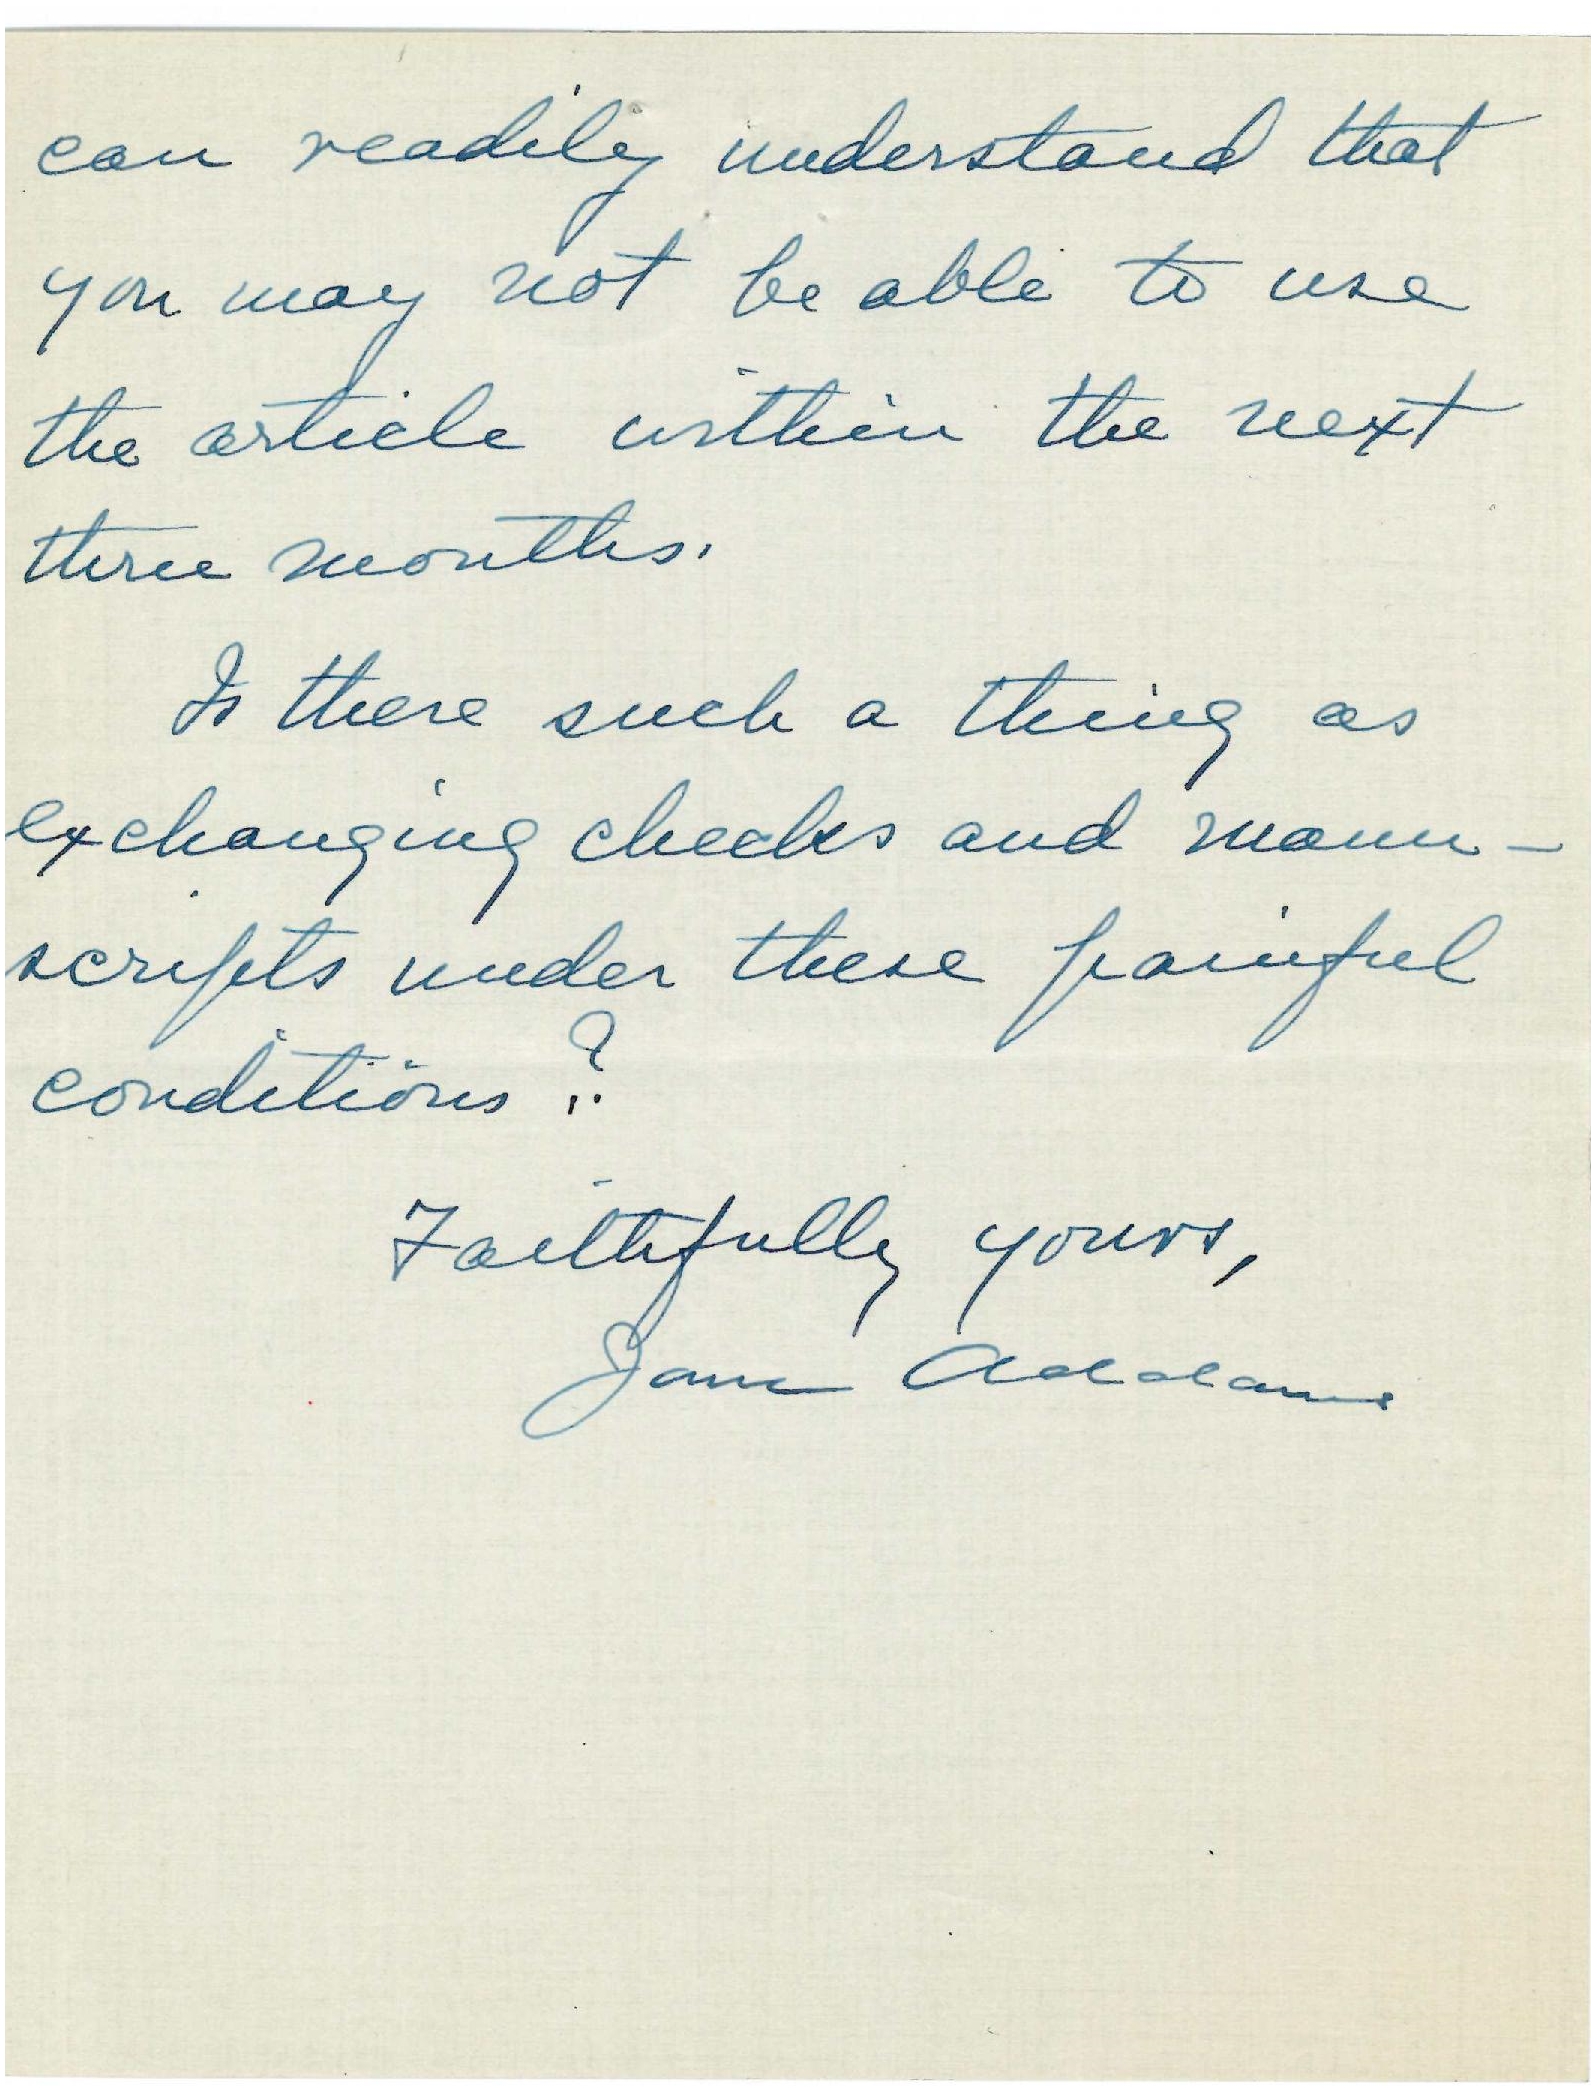 can readily understand that
you may not be able to use
the article within the next
three months.
Is there such a thing as
exchanging checks and manu-
scripts under these painful
conditions?
Faithfully yours,
Jane Addams